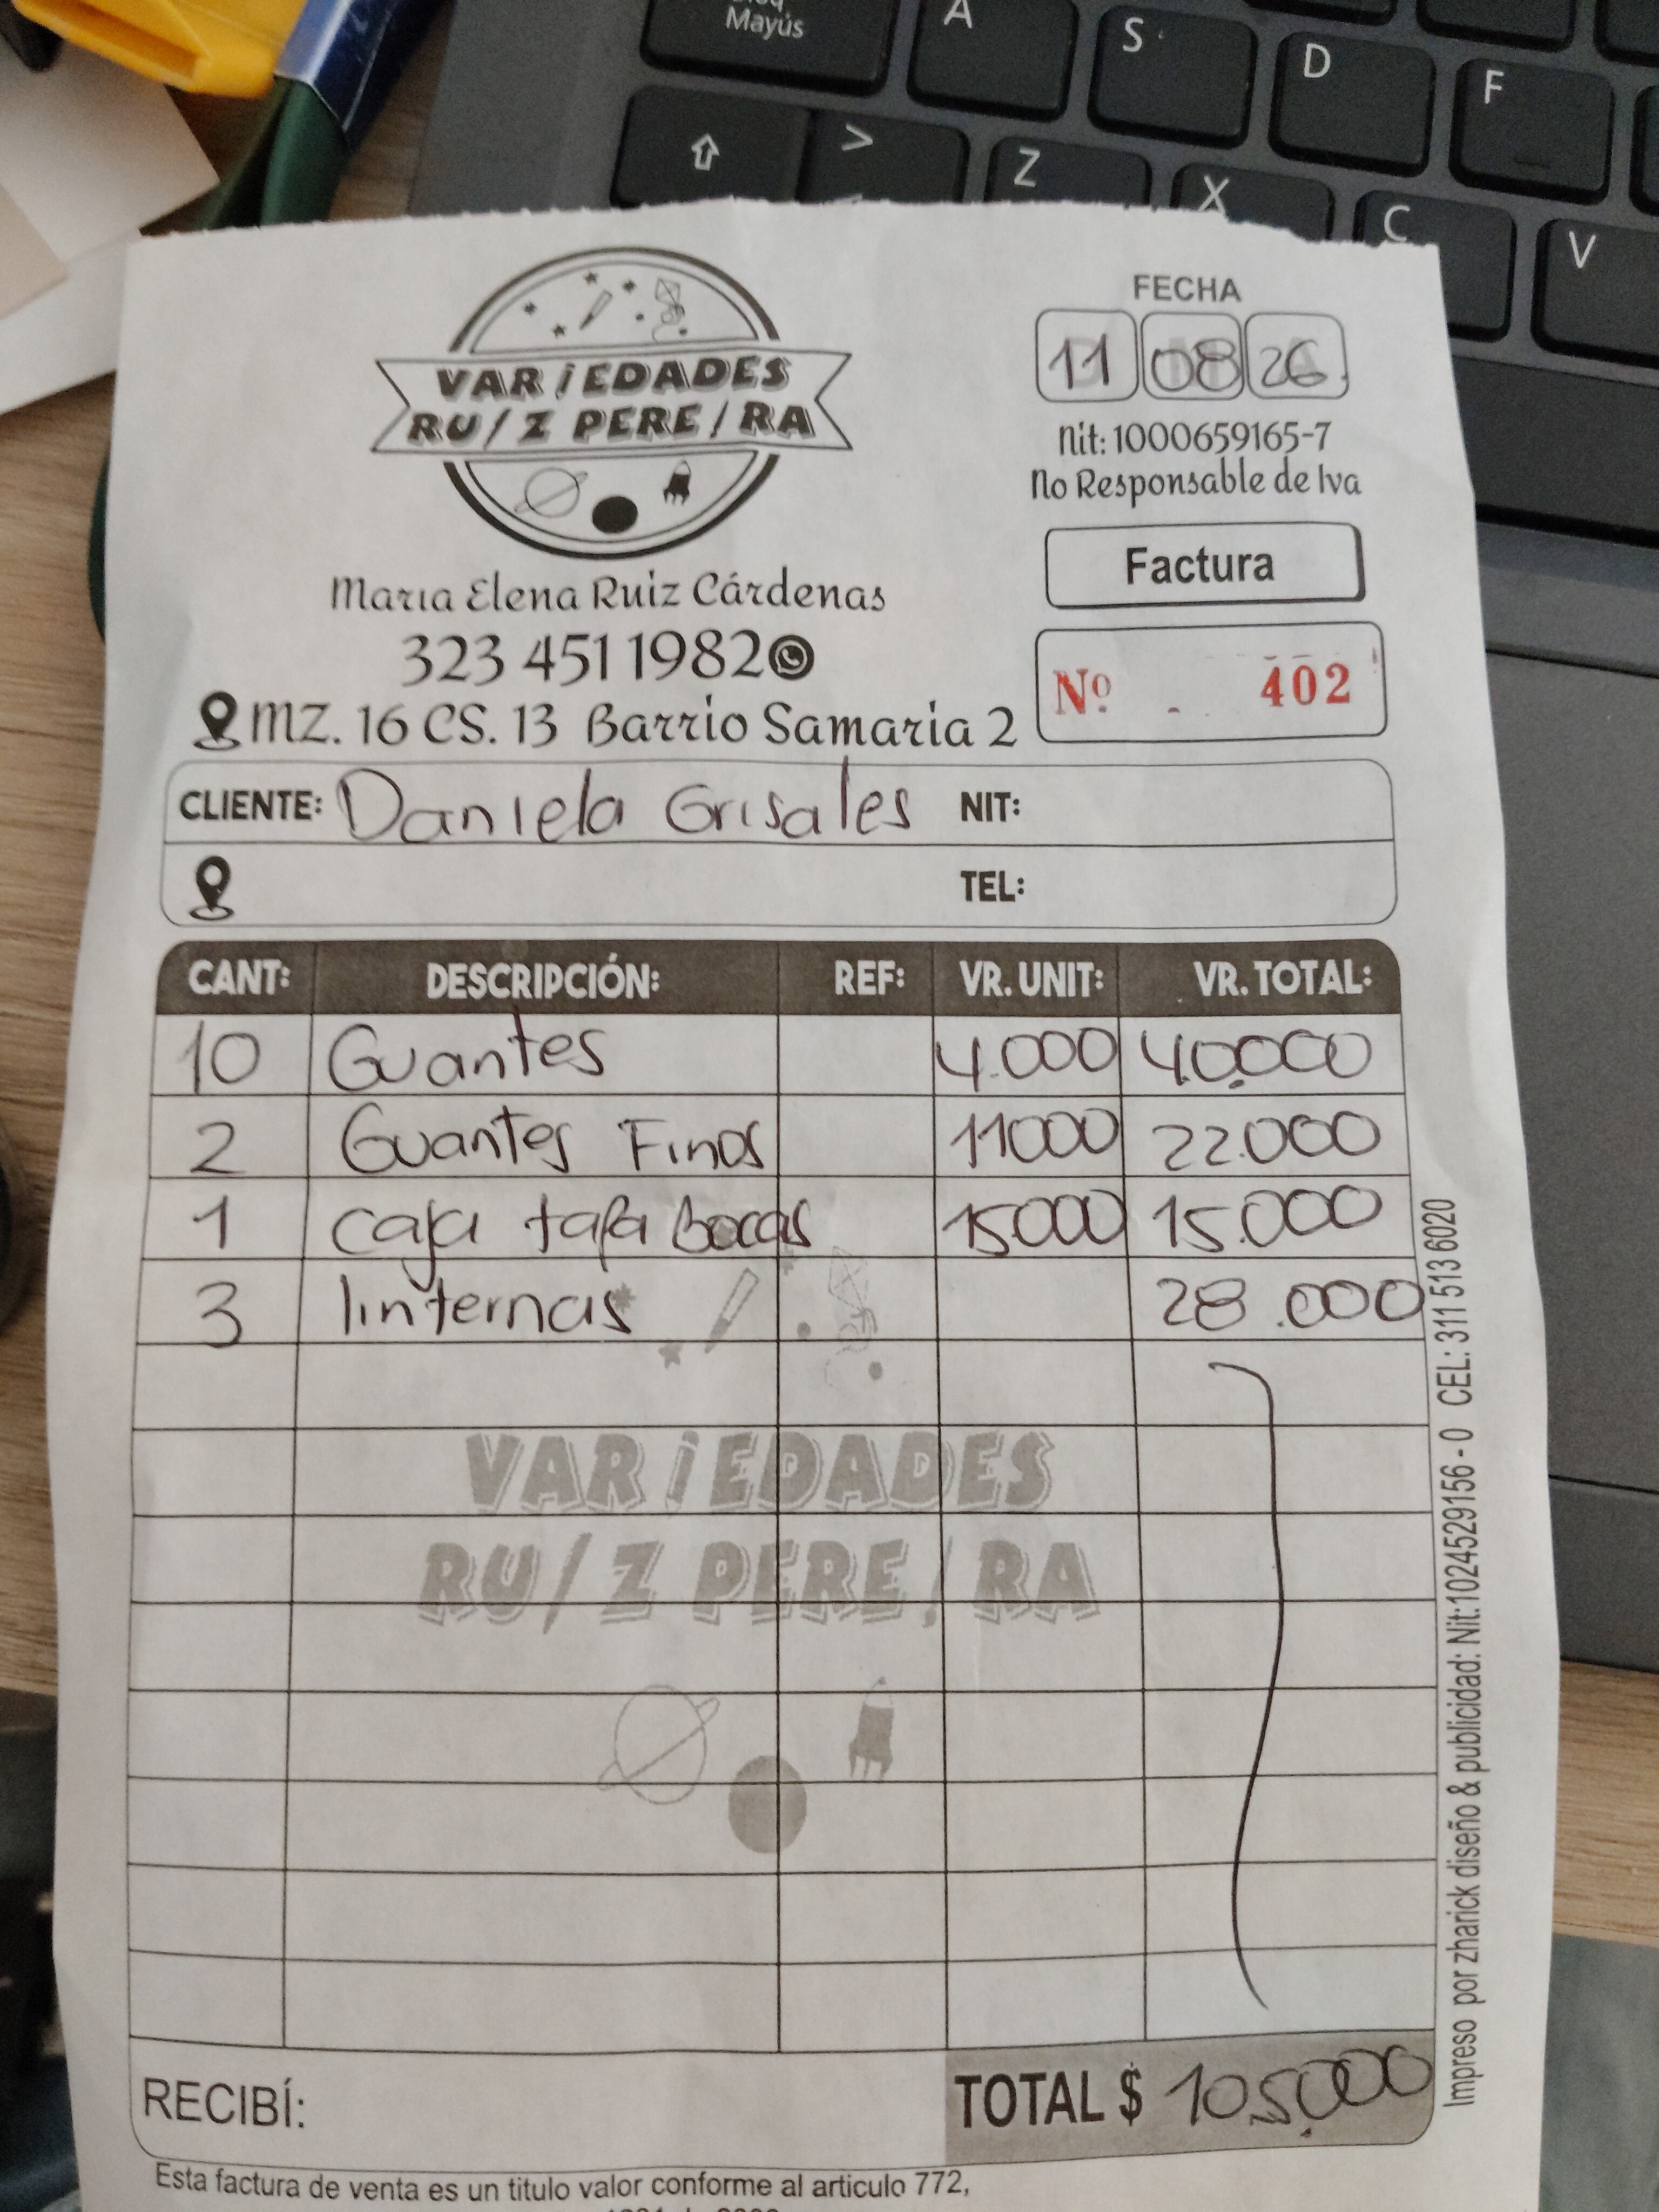 Bloq Mayús A S D F
> Z X C V
<
VARiEDADES
RU/Z PERE/RA
FECHA
11 08 26
Nit: 1000659165-7
No Responsable de Iva
Factura
Nº 402
Maria Elena Ruiz Cárdenas
323 451 1982
MZ. 16 CS. 13 Barrio Samaria 2
CLIENTE: Daniela Grisales NIT:
TEL:
CANT: DESCRIPCIÓN: REF: VR. UNIT: VR. TOTAL:
10 Guantes 4.000 40.000
2 Guantes Finos 11000 22.000
1 caja tapa Bocas 15000 15.000
3 linternas 28.000
VARiEDADES
RU/Z PERE/RA
RECIBÍ: TOTAL $ 105,000
Esta factura de venta es un titulo valor conforme al articulo 772,
Impreso por zharick diseño & publicidad: Nit:1024529156 - 0 CEL: 311 513 6020